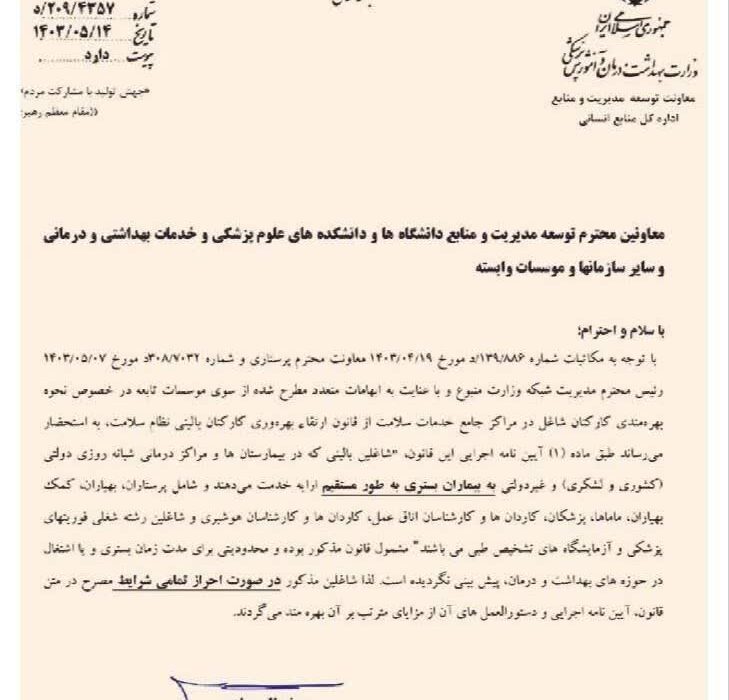 شماره ۲۰۹/۴۳۵۷/د
تاریخ ۱۴۰۳/۰۵/۱۴
پیوست دارد
«جهش تولید با مشارکت مردم»
((مقام معظم رهبر
جمهوری اسلامی ایران
وزارت بهداشت، درمان و آموزش پزشکی
معاونت توسعه مدیریت و منابع
اداره کل منابع انسانی
معاونین محترم توسعه مدیریت و منابع دانشگاه ها و دانشکده های علوم پزشکی و خدمات بهداشتی و درمانی
و سایر سازمانها و موسسات وابسته
با سلام و احترام؛
با توجه به مکاتبات شماره ۱۳۹/۸۸۶/د مورخ ۱۴۰۳/۰۴/۱۹ معاونت محترم پرستاری و شماره ۳۰۸/۷۰۳۲د مورخ ۱۴۰۳/۰۵/۰۷
رئیس محترم مدیریت شبکه وزارت متبوع و با عنایت به ابهامات متعدد مطرح شده از سوی موسسات تابعه در خصوص نحوه
بهره‌مندی کارکنان شاغل در مراکز جامع خدمات سلامت از قانون ارتقاء بهره‌وری کارکنان بالینی نظام سلامت، به استحضار
می‌رساند طبق ماده (۱) آیین نامه اجرایی این قانون، "شاغلین بالینی که در بیمارستان ها و مراکز درمانی شبانه روزی دولتی
(کشوری و لشگری) و غیردولتی به بیماران بستری به طور مستقیم ارایه خدمت می‌دهند و شامل پرستاران، بهیاران، کمک
بهیاران، ماماها، پزشکان، کاردان ها و کارشناسان اتاق عمل، کاردان ها و کارشناسان هوشبری و شاغلین رشته شغلی فوریتهای
پزشکی و آزمایشگاه های تشخیص طبی می باشند" مشمول قانون مذکور بوده و محدودیتی برای مدت زمان بستری و یا اشتغال
در حوزه های بهداشت و درمان، پیش بینی نگردیده است. لذا شاغلین مذکور در صورت احراز تمامی شرایط مصرح در متن
قانون، آیین نامه اجرایی و دستورالعمل های آن از مزایای مترتب بر آن بهره مند می‌گردند.